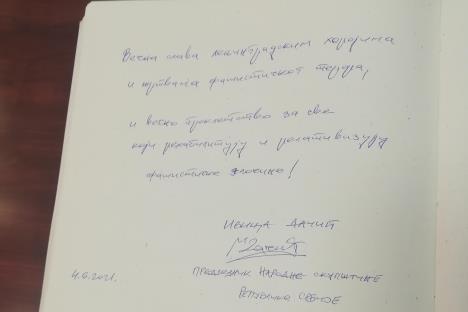 Вечна слава ленинградским херојима
и жртвама фашистичког терора,
и вечно проклетство за све
који рехабилитују и релативизују
фашистичке злочине!
Ивица Дачић
Председник Народне скупштине
Републике Србије
4.6.2021.